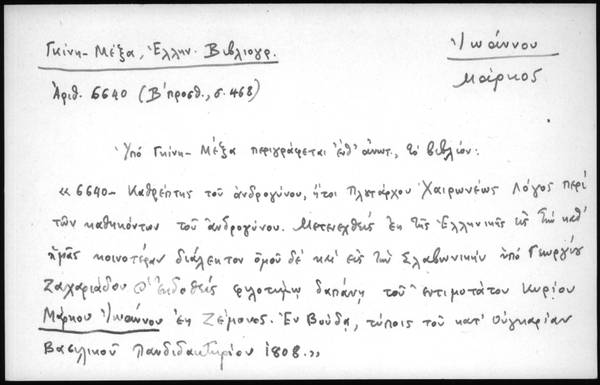 Γκίνη - Μέξα, Ἑλλην. Βιβλιογρ.
Ἰωάννου
Μάρκος
Ἀριθ. 6640 (Β΄ προσθ., σ. 468)
Ὑπό Γκίνη - Μέξα περιγράφεται ἐνθ' ἀνωτ., τό βιβλίον:
« 6640 - Καθρέπτης τοῦ ἀνδρογύνου, ἤτοι Πλουτάρχου Χαιρωνέως Λόγος περί
τῶν καθηκόντων τοῦ ἀνδρογύνου. Μετενεχθείς ἐκ τῆς Ἑλληνικῆς εἰς τήν καθ'
ἡμᾶς κοινοτέραν διάλεκτον ὁμοῦ δέ καί εἰς τήν Σλαβωνικήν ὑπό Γεωργίου
Ζαχαριάδου ἐκδοθείς φιλοτίμῳ δαπάνῃ τοῦ ἐντιμοτάτου Κυρίου
Μάρκου Ἰωάννου ἐκ Ζέμονος. Ἐν Βούδᾳ, τύποις τοῦ κατ' Οὐγκαρίαν
Βασιλικοῦ Πανδιδακτηρίου 1808.»